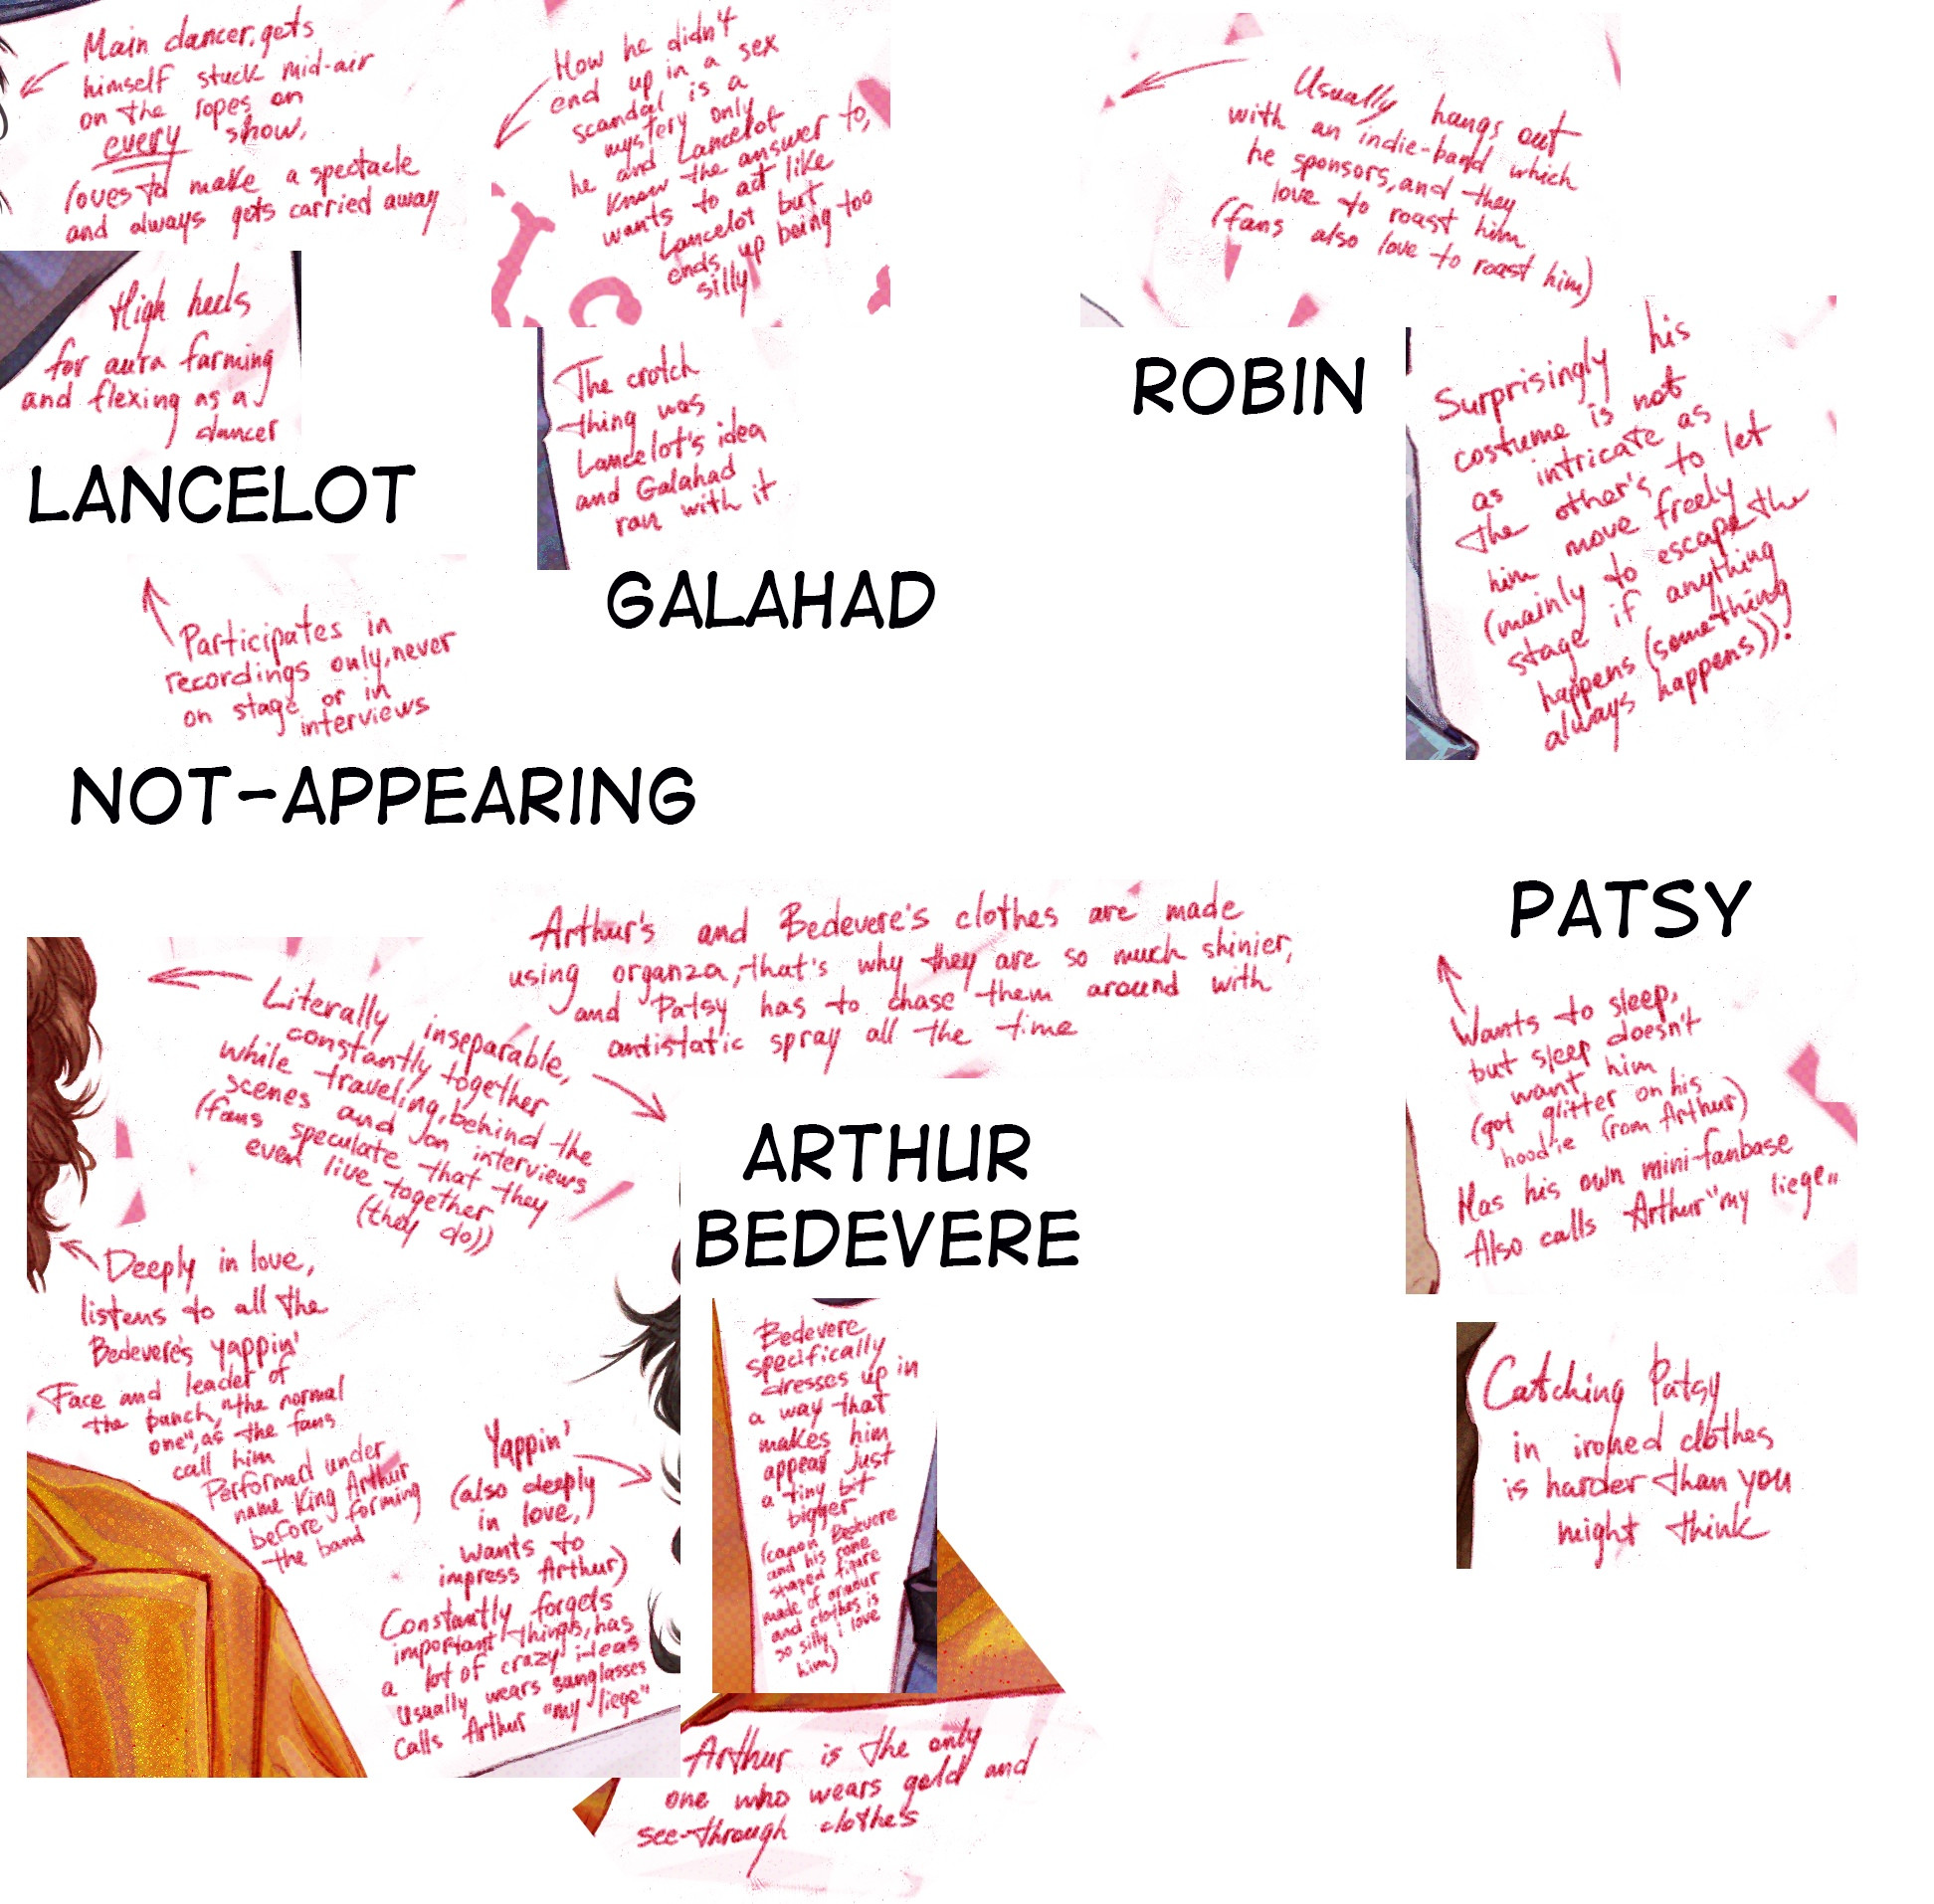 Main dancer, gets
himself stuck mid-air
on the ropes on
every show,
loves to make a spectacle
and always gets carried away
High heels
for aura farming
and flexing as a
dancer
LANCELOT
How he didn't
end up in a sex
scandal is a
mystery only
he and Lancelot
know the answer to,
wants to act like
Lancelot but
ends up being too
silly
The crotch
thing was
Lancelot's idea
and Galahad
ran with it
GALAHAD
Usually hangs out
with an indie-band which
he sponsors, and they
love to roast him
(fans also love to roast him)
ROBIN
Surprisingly his
costume is not
as intricate as
the other's to let
him move freely
(mainly to escape the
stage if anything
happens (something
always happens)).
Participates in
recordings only, never
on stage or in
interviews
NOT-APPEARING
Arthur's and Bedevere's clothes are made
using organza, that's why they are so much shinier,
and Patsy has to chase them around with
antistatic spray all the time
Literally inseparable,
constantly together
while traveling, behind the
scenes and on interviews
(fans speculate that they
even live together
(they do))
Deeply in love,
listens to all the
Bedevere's yappin'
Face and leader of
the bunch, "the normal
one", as the fans
call him
Performed under
name King Arthur
before forming
the band
Yappin'
(also deeply
in love,
wants to
impress Arthur)
Constantly forgets
important things, has
a lot of crazy ideas
Usually wears sunglasses
Calls Arthur "my liege"
ARTHUR
BEDEVERE
Bedevere
specifically
dresses up in
a way that
makes him
appear just
a tiny bit
bigger
(canon Bedevere
and his cone
shaped figure
made of armour
and clothes is
so silly i love
him)
Arthur is the only
one who wears gold and
see-through clothes
PATSY
Wants to sleep,
but sleep doesn't
want him
(got glitter on his
hoodie from Arthur)
Has his own mini-fanbase
Also calls Arthur "my liege„
Catching Patsy
in ironed clothes
is harder than you
might think